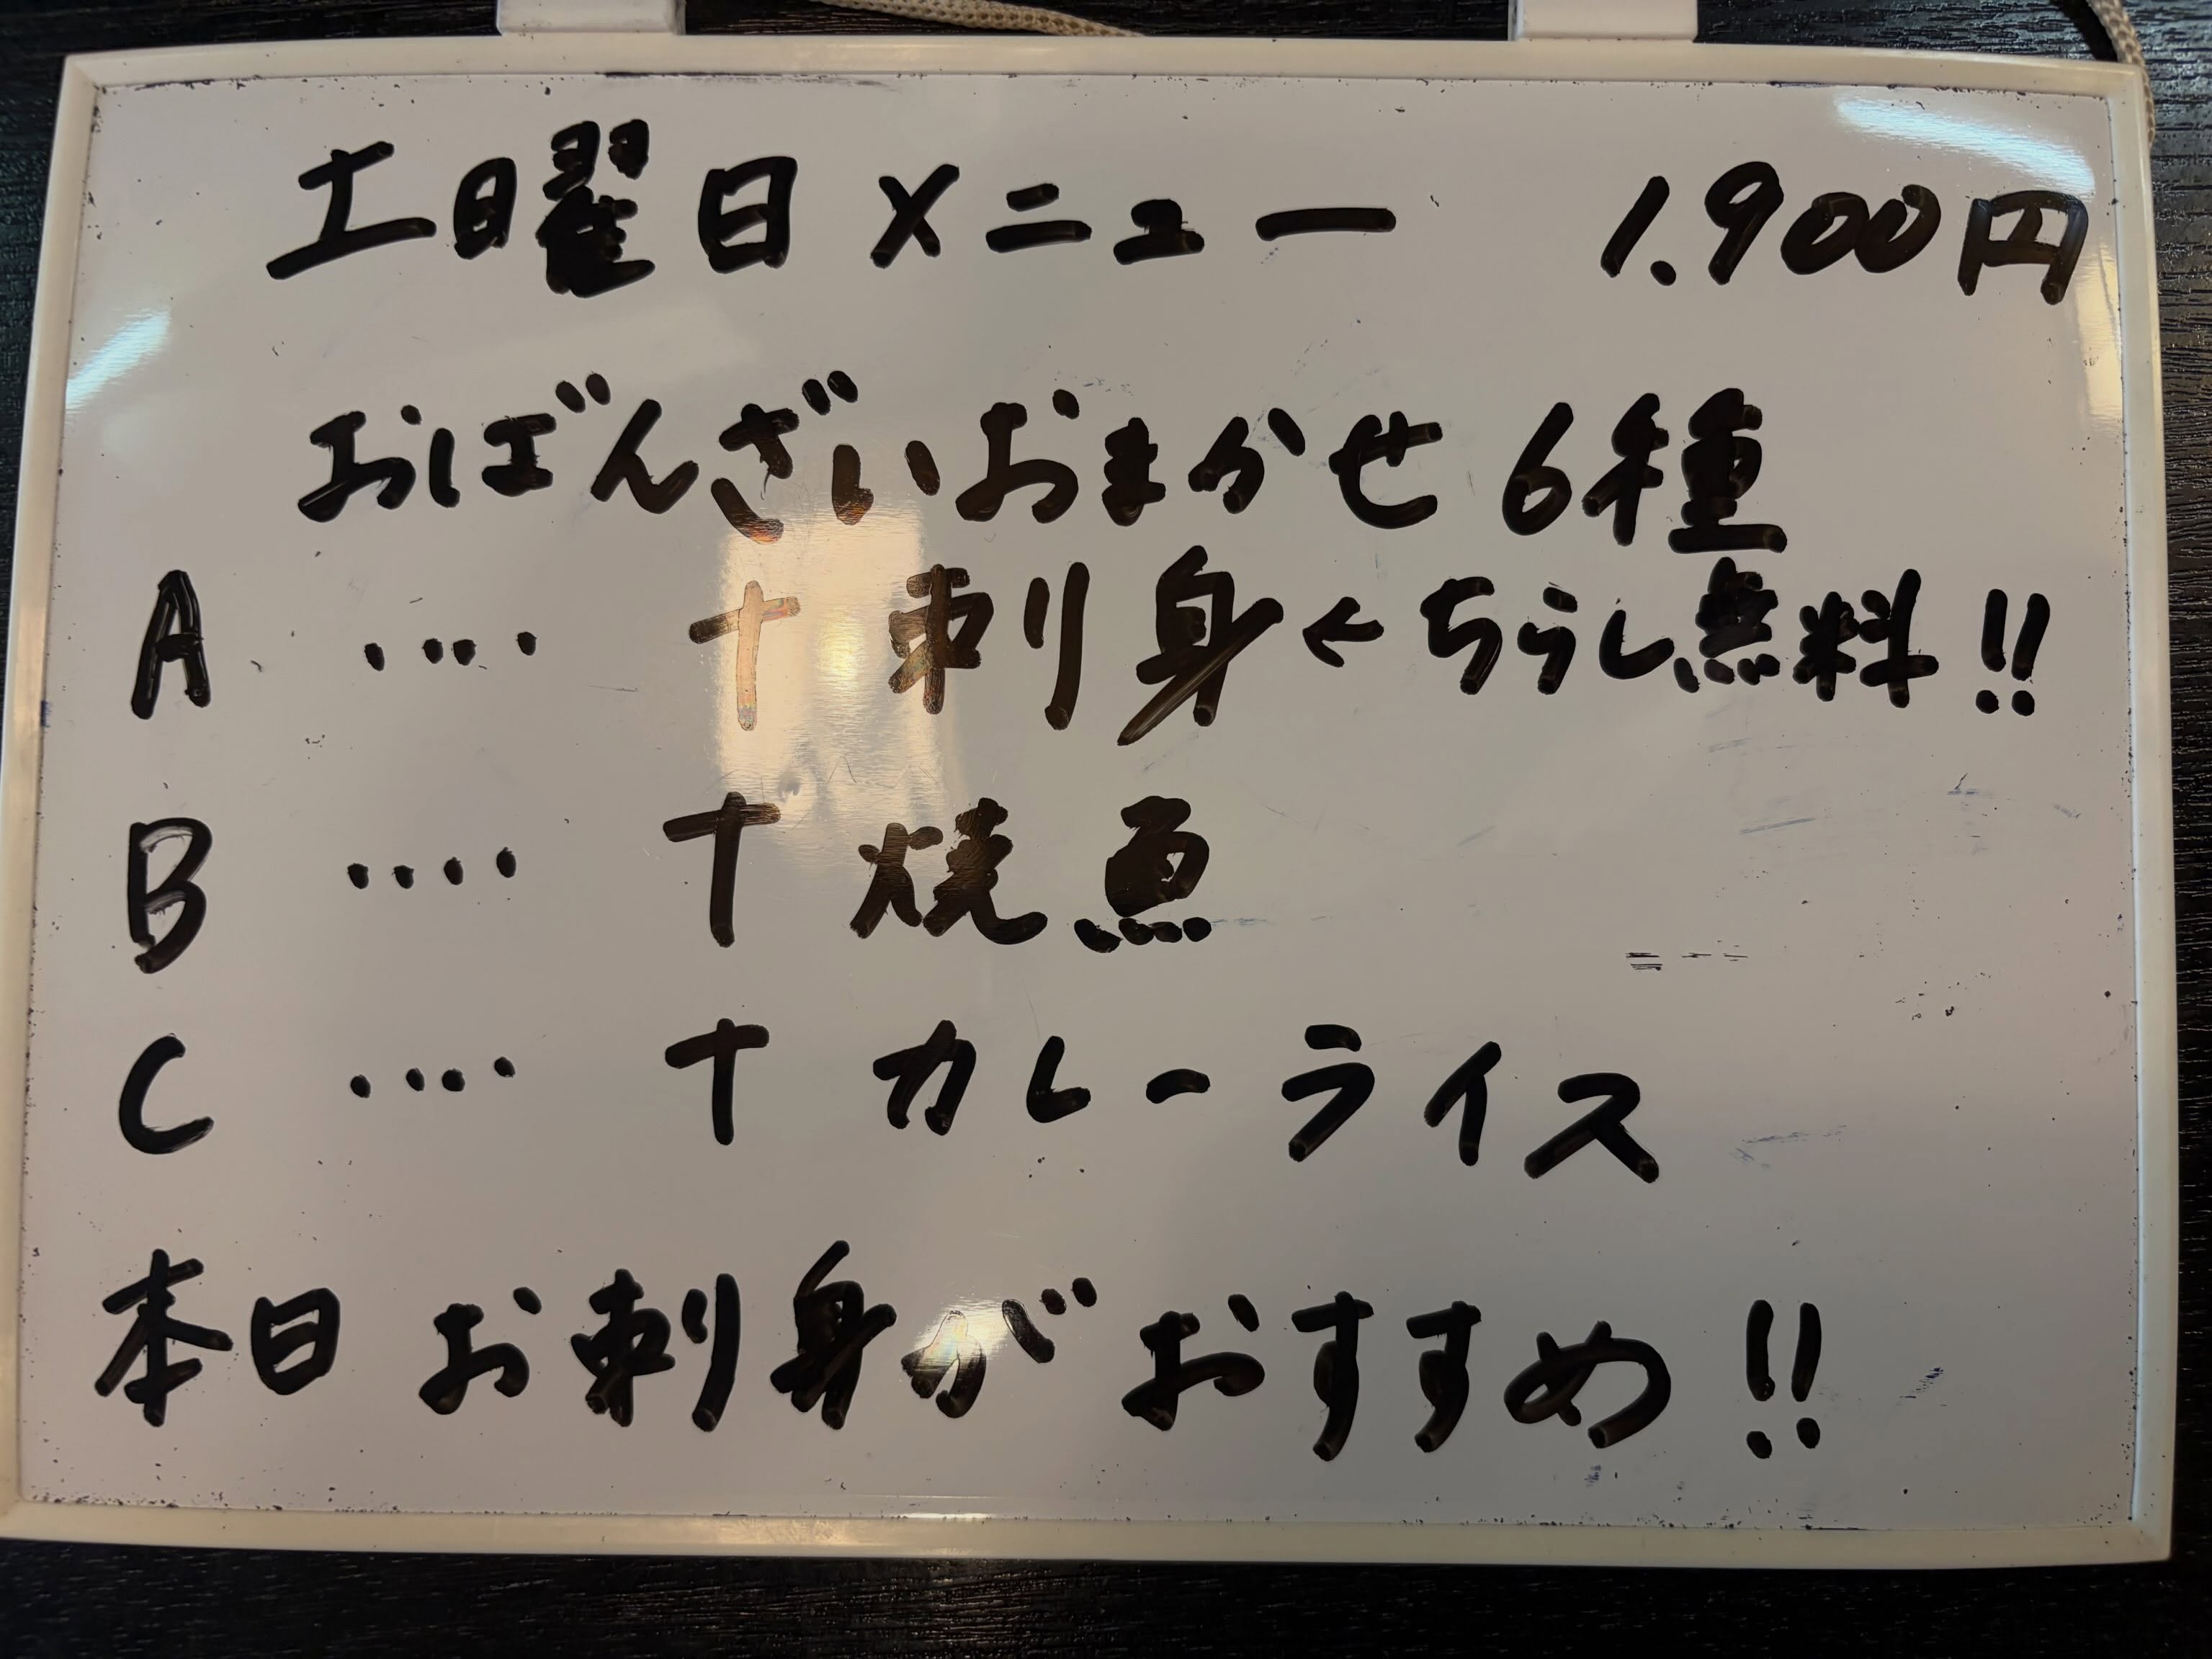 土曜日メニュー 1.900円
おばんざいおまかせ 6種
A ‥‥ + 刺身 ← ちらし無料!!
B ‥‥ + 焼魚
C ‥‥ + カレーライス
本日 お刺身が おすすめ!!